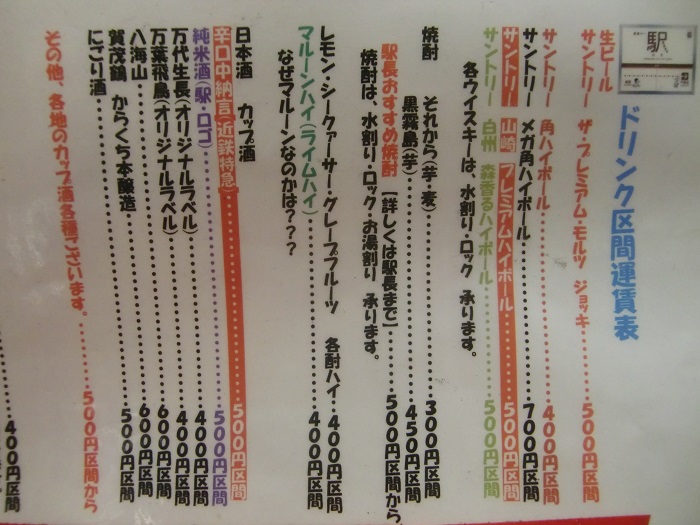 駅
ドリンク区間運賃表
生ビール
サントリー ザ・プレミアム・モルツ ジョッキ・・・・・500円区間
サントリー 角ハイボール・・・・・・・・・・400円区間
サントリー メガ角ハイボール・・・・・・・・700円区間
サントリー 山崎 プレミアムハイボール・・・・・500円区間
サントリー 白州 森香るハイボール・・・・・・500円区間
各ウイスキーは、水割り・ロック 承ります。
焼酎 それから(芋・麦)・・・・・・・・・・300円区間
黒霧島(芋)・・・・・・・・・・・・450円区間
駅長おすすめ焼酎【詳しくは駅長まで】・・・・・500円区間から
焼酎は、水割り・ロック・お湯割り 承ります。
レモン・シークァーサー・グレープフルーツ 各酎ハイ・・・400円区間
マルーンハイ(ライムハイ)・・・・・・・・・・400円区間
なぜマルーンなのかは???
日本酒 カップ酒
辛口中納言(近鉄特急)・・・・・・・・・・500円区間
純米酒(駅・ロゴ)・・・・・・・・・・・・500円区間
万代生長(オリジナルラベル)・・・・・・・・400円区間
万葉飛鳥(オリジナルラベル)・・・・・・・・600円区間
八海山・・・・・・・・・・・・・・・・600円区間
賀茂鶴 からくち本醸造・・・・・・・・・・500円区間
にごり酒・・・・・・・・・・・・・・・
その他、各地のカップ酒各種ございます。・・・・・500円区間から
400円区間